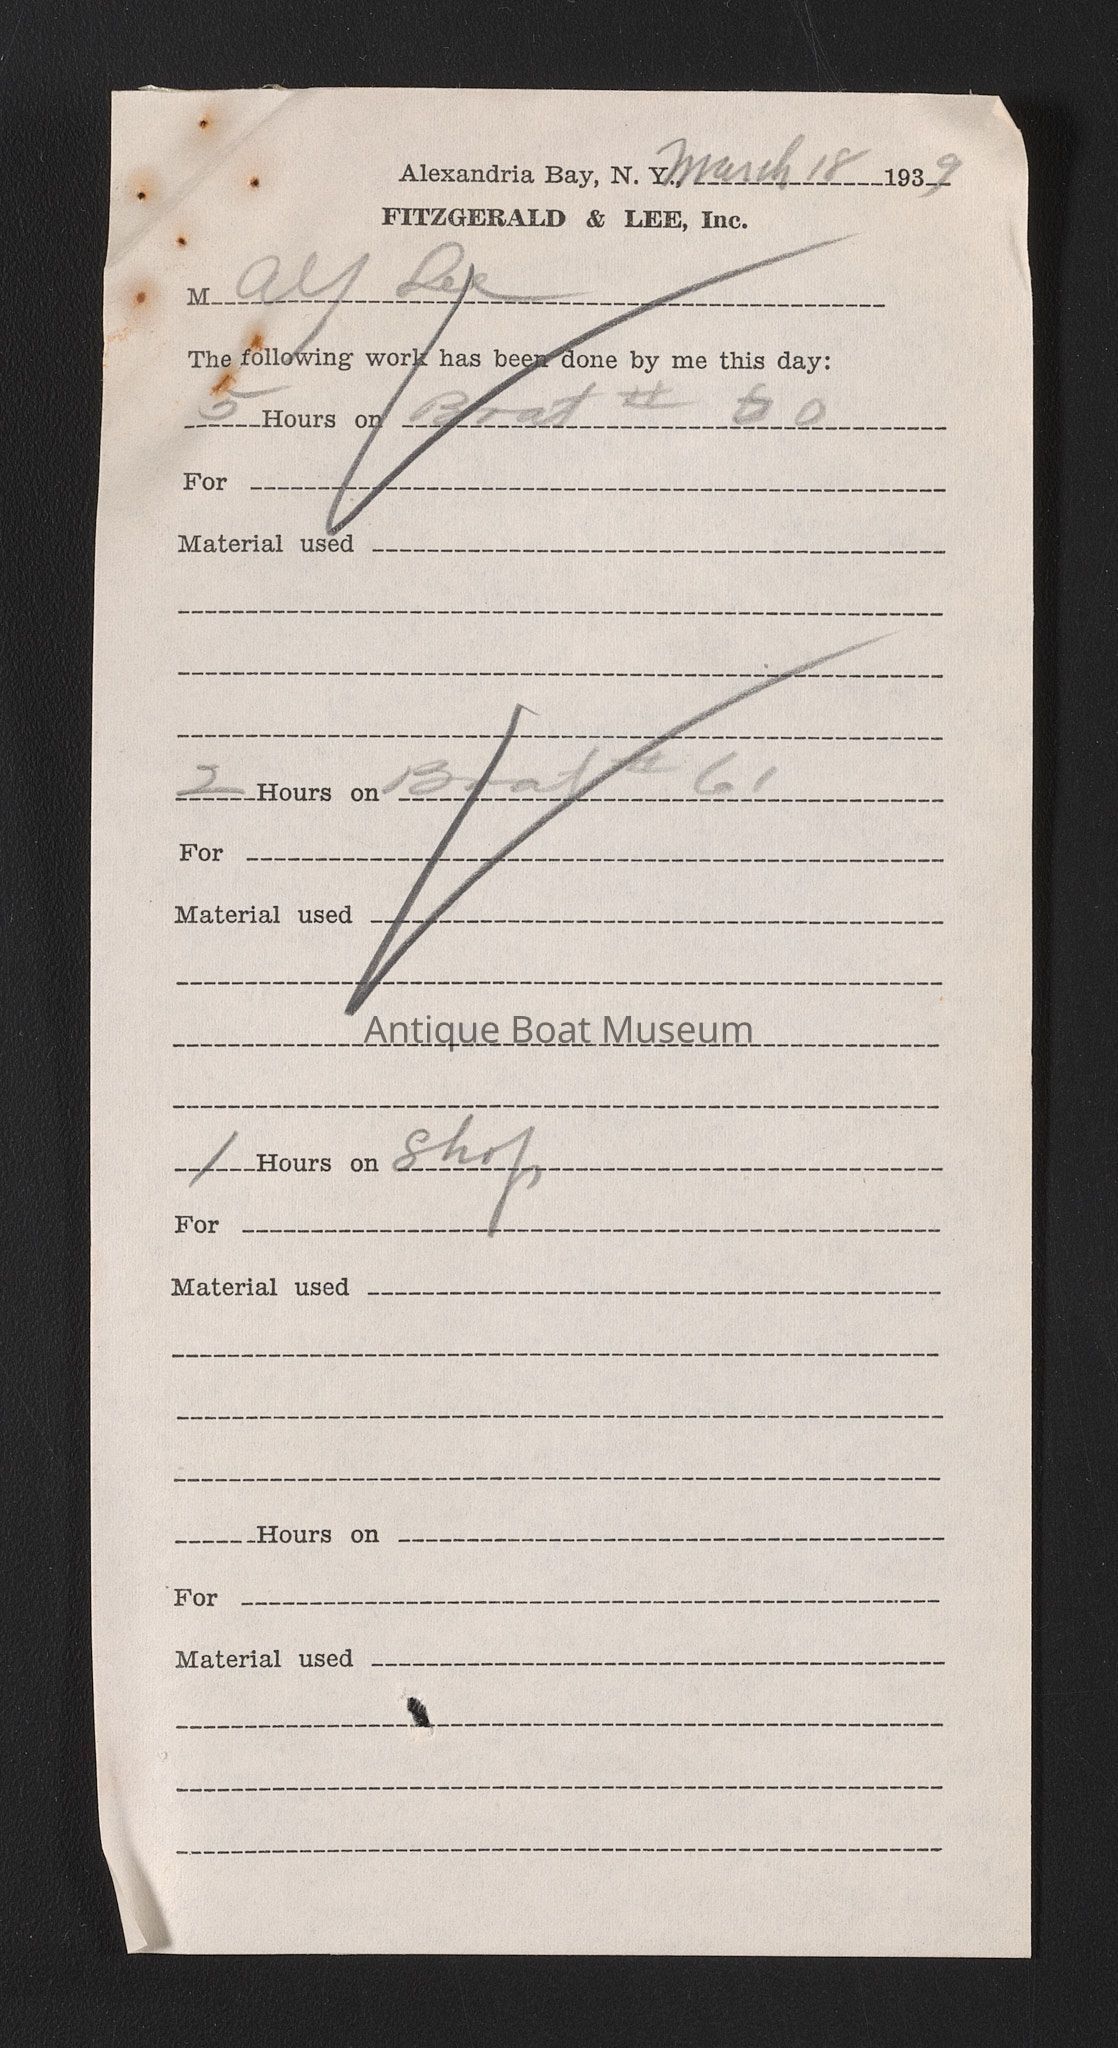 Alexandria Bay, N. Y., March 18 1939
FITZGERALD & LEE, Inc.
M Alf Lee
The following work has been done by me this day:
5 Hours on Boat # 60
For
Material used
2 Hours on Boat # 61
For
Material used
Antique Boat Museum
1 Hours on Shop
For
Material used
Hours on
For
Material used